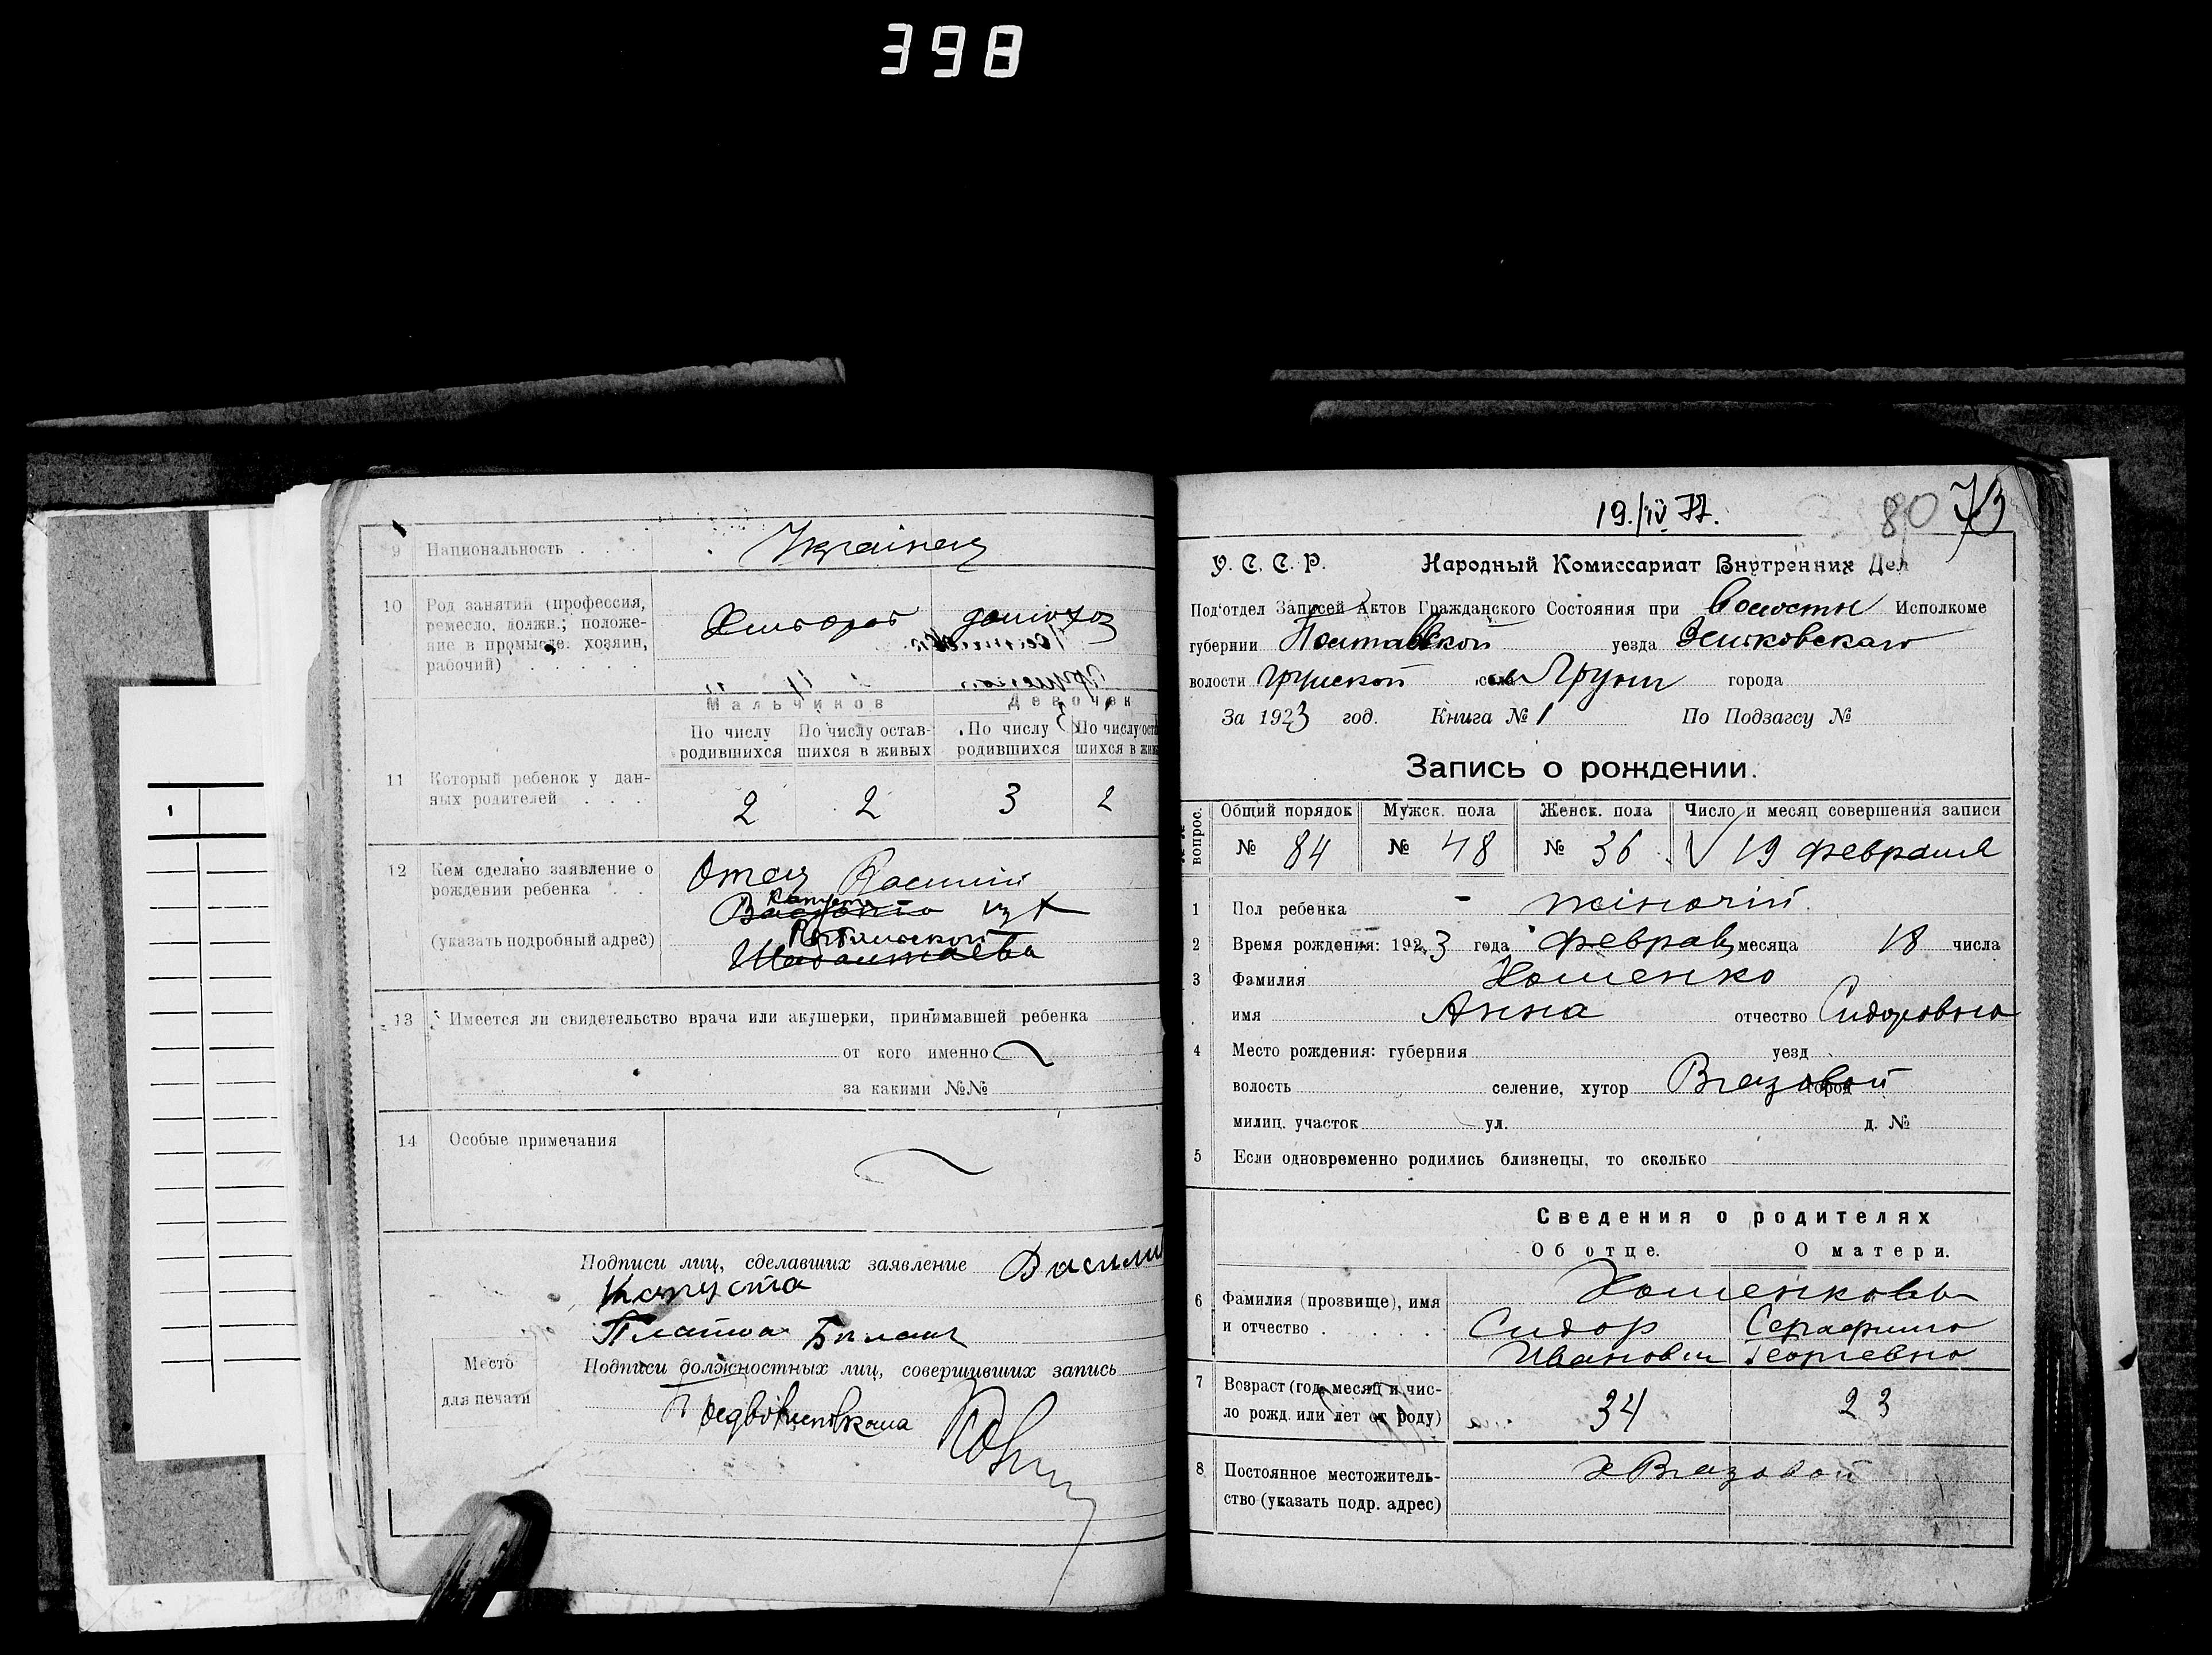 398
9 Национальность . . . .
Украінец
10 Род занятий (профессия,
ремесло, должн.; положе-
ние в промысле. хозяин,
рабочий) . . . . .
Хлебороб домохоз
Мальчиков Девочек
По числу родившихся По числу оставшихся в живых По числу родившихся По числу
11 Который ребенок у дан-
ных родителей . . .
2 2 3 2
12 Кем сделано заявление о
рождении ребенка . .
(указать подробный адрес)
Отец Василий
Капуста
из х
13 Имеется ли свидетельство врача или акушерки, принимавшей ребенка
от кого именно
за какими №№
14 Особые примечания
Подписи лиц, сделавших заявление Васили
Капуста
Билаш
Место
для печати
Подписи должностных лиц, совершивших запись
19./IV 77.
80 73
У. С. С. Р. Народный Комиссариат Внутренних Дел
Под'отдел Записей Актов Гражданского Состояния при волостн Исполкоме
губернии Полтавской уезда Зеньковскаго
волости Грунской села Грунь города
За 1923 год. Книга № 1 По Подзагсу №
Запись о рождении.
вопрос. Общий порядок Мужск. пола Женск. пола Число и месяц совершения записи
№ 84 № 48 № 36 19 февраля
1 Пол ребенка - жіночій
2 Время рождения: 1923 года февраль месяца 18 числа
3 Фамилия Хоменко
имя Анна отчество Сидоровна
4 Место рождения: губерния уезд
волость селение, хутор Вязовой город
милиц. участок ул. д. №
5 Если одновременно родились близнецы, то сколько
Сведения о родителях
Об отце. О матери.
6 Фамилия (прозвище), имя
и отчество . . . . .
Хоменковы
Сидор Серафима
Иванович Георгевна
7 Возраст (год, месяц и чис-
ло рожд. или лет от роду)
34 23
8 Постоянное местожитель-
ство (указать подр. адрес)
х Вязовой
1